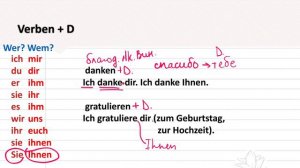 Verben + D
Wer? Wem?
ich mir
du dir
er ihm
sie ihr
es ihm
wir uns
ihr euch
sie ihnen
Sie Ihnen
благод. Вин.
danken + D.
Ich danke dir. Ich danke Ihnen.
gratulieren + D.
Ich gratuliere dir (zum Geburtstag,
zur Hochzeit).
Ihnen
D.
спасибо → тебе